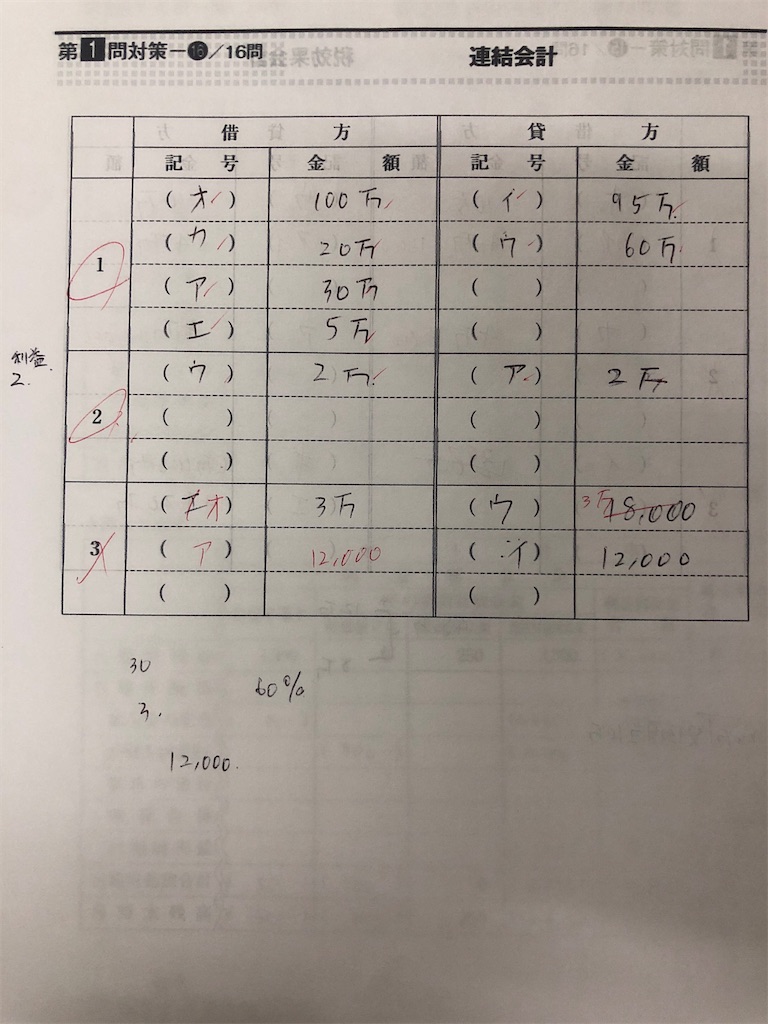 第1問対策－⓰／16問 連結会計
借 方 貸 方
記 号 金 額 記 号 金 額
1 ( オ ) 100万 ( イ ) 95万
( カ ) 20万 ( ウ ) 60万
( ア ) 30万 ( )
( エ ) 5万 ( )
利益 2.
2 ( ウ ) 2万 ( ア ) 2万
( ) ( )
( ) ( )
3 ( オ ) 3万 ( ウ ) 3万 18,000
( ア ) 12,000 ( イ ) 12,000
( ) ( )
30
60%
3.
12,000.